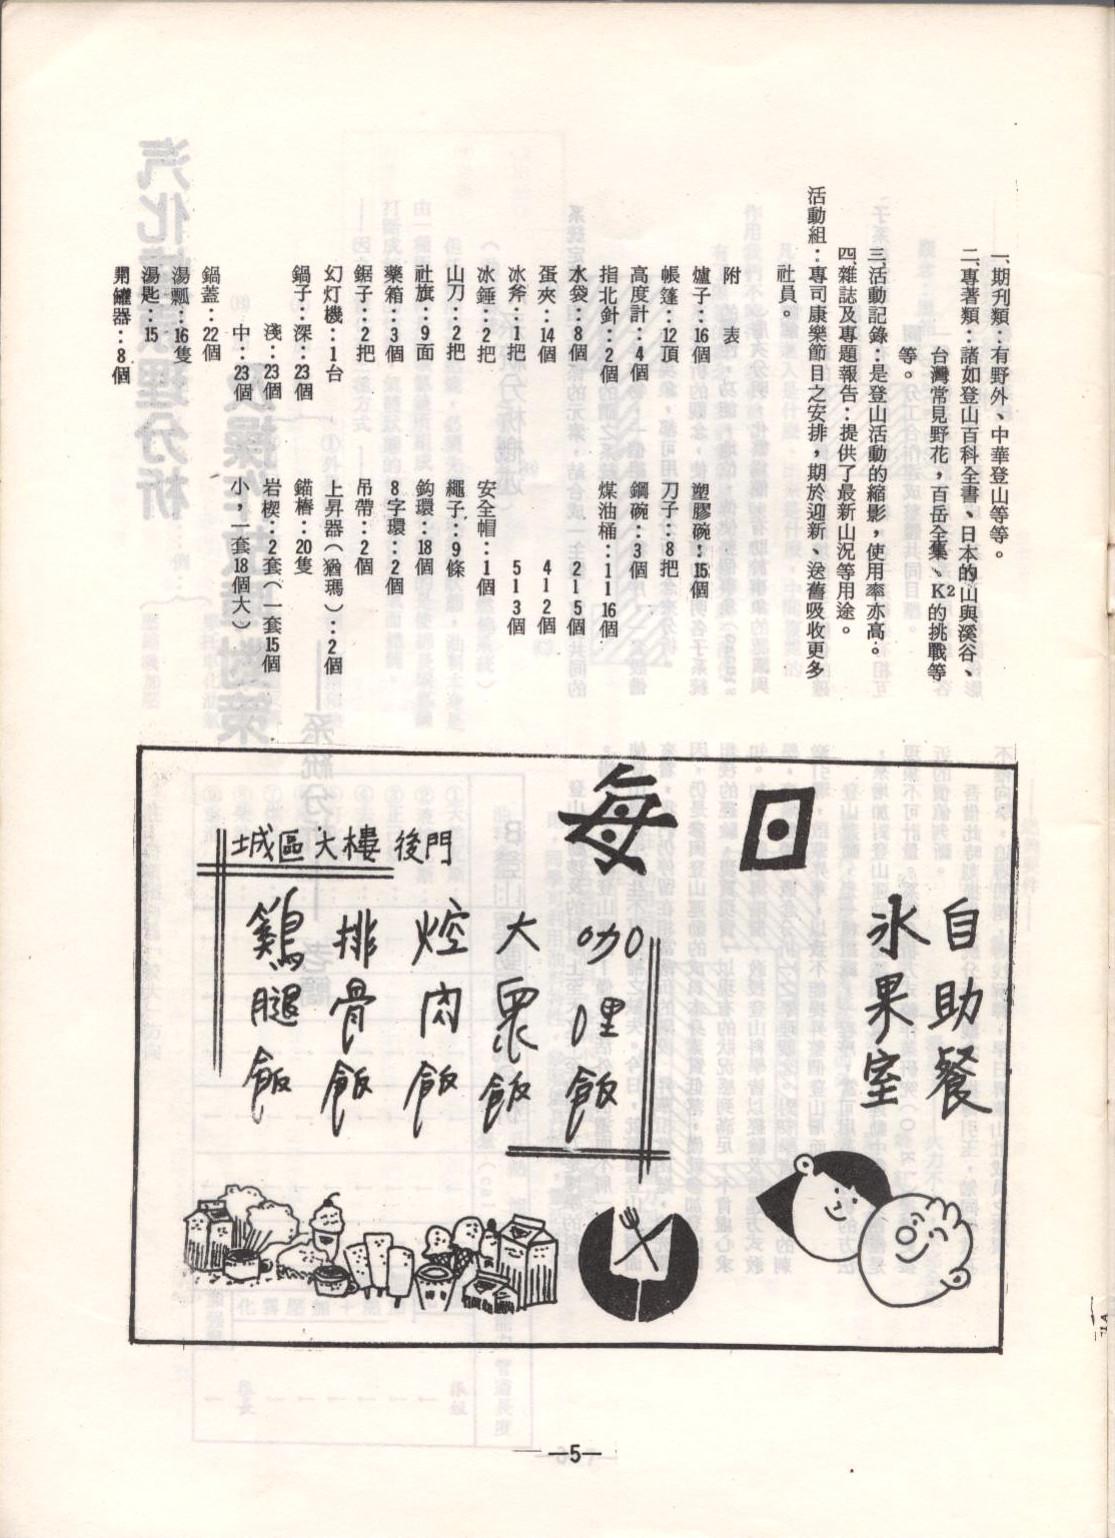 一、期刊類：有野外、中華登山等等。
二、專著類：諸如登山百科全書、日本的山與溪谷、
台灣常見野花，百岳全集、K²的挑戰等
等。
三、活動記錄：是登山活動的縮影，使用率亦高。
四、雜誌及專題報告：提供了最新山況等用途。
活動組：專司康樂節目之安排，期於迎新、送舊吸收更多
社員。
附　表
爐子：16個　塑膠碗：15個
帳篷：12頂　刀子：8把
高度計：4個　鋼碗：3個
指北針：2個　煤油桶：1l 16個
水袋：8個　2l 5個
蛋夾：14個　4l 2個
冰斧：1把　5l 3個
冰錘：2把　安全帽：1個
山刀：2把　繩子：9條
社旗：9面　鈎環：18個
藥箱：3個　8字環：2個
鋸子：2把　吊帶：2個
幻灯機：1台　上昇器（猶瑪）：2個
鍋子：深：23個　錨樁：20隻
淺：23個　岩楔：2套（一套15個
中：23個　小，一套18個大）
鍋蓋：22個
湯瓢：16隻
湯匙：15
開罐器：8個
自助餐
氷果室
每日
咖哩飯
大衆飯
焢肉飯
排骨飯
鷄腿飯
城區大樓後門
—5—